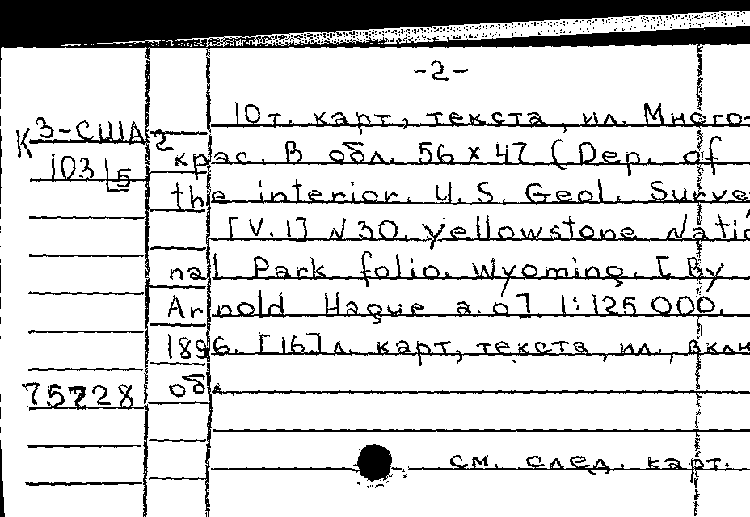 -2-
К 3-США 2
103 | 5
10 т. карт, текста, ил. Много-
крас. В обл. 56 x 47 (Dep. of
the interior. U.S. Geol. Surve
[V. 1] N 30. Yellowstone Natio
nal Park folio. Wyoming. [By
Arnold Hague a. o] 1:125 000.
1896. [16] л. карт, текста, ил., вклю
обл.
75728
см. след. карт.